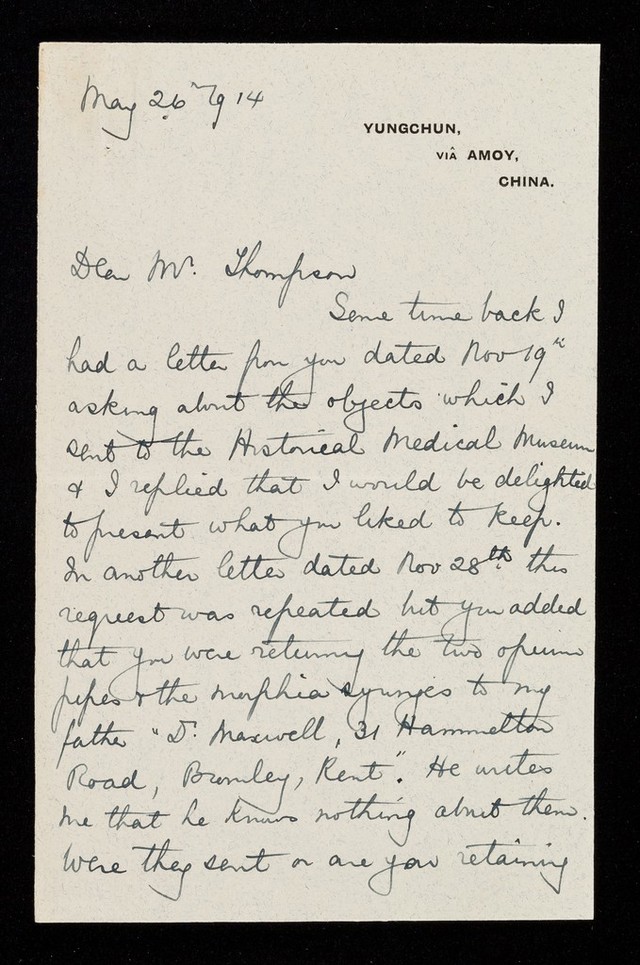 May 26th/914
YUNGCHUN,
VIÂ AMOY,
CHINA.
Dear Mr. Thompson
Some time back I
had a letter from you dated Nov 19th
asking about the objects which I
sent to the Historical Medical Museum
& I replied that I would be delighted
to present what you liked to keep.
In another letter dated Nov 28th. this
request was repeated but you added
that you were returning the two opium
pipes & the morphia syringes to my
father "Dr. Maxwell, 31 Hammelton
Road, Bromley, Kent". He writes
me that he knows nothing about them.
Were they sent or are you retaining